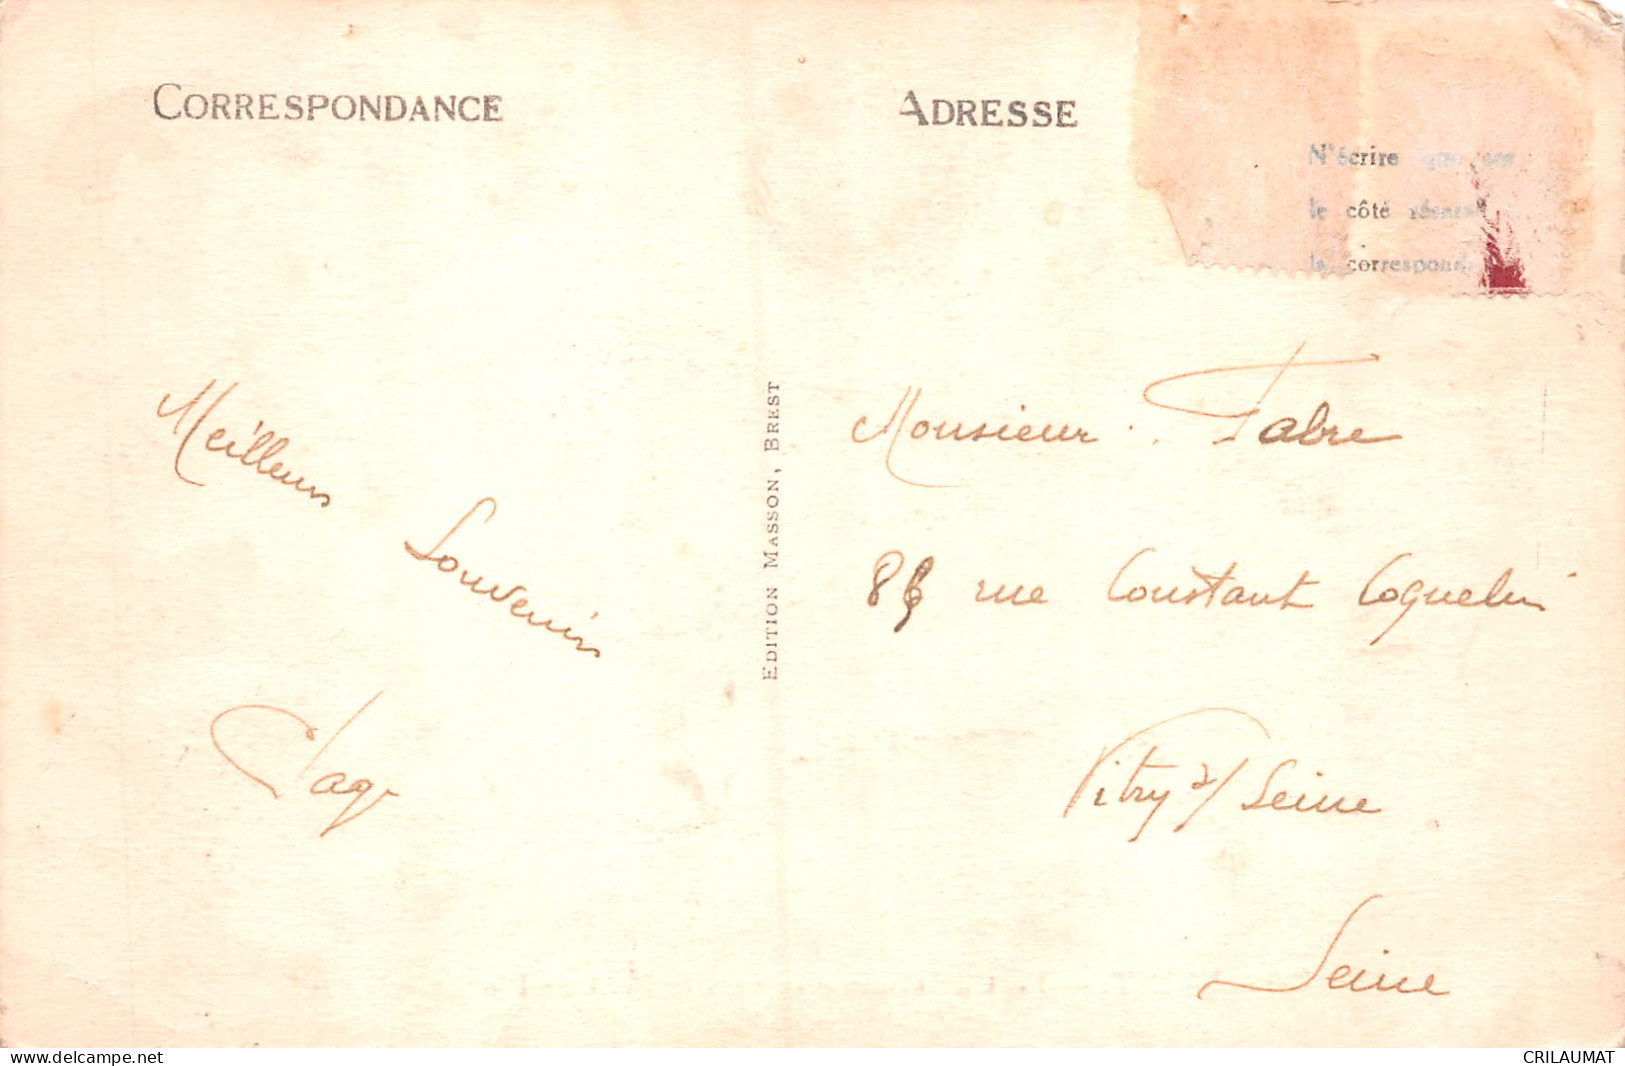 CORRESPONDANCE
ADRESSE
N'écrire que sur
le côté réservé
la correspond
Meilleurs
Souvenirs
EDITION MASSON, BREST
Monsieur Fabre
86 rue Constant Coquelin
Vitry s/ Seine
Seine
www.delcampe.net
CRILAUMAT